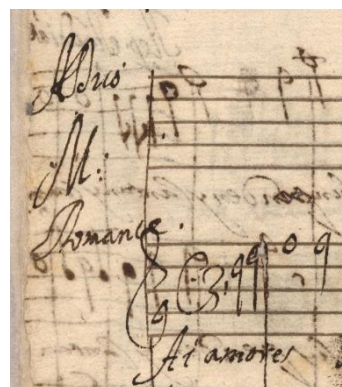 ADuo
M:
Romance.
Ai amores